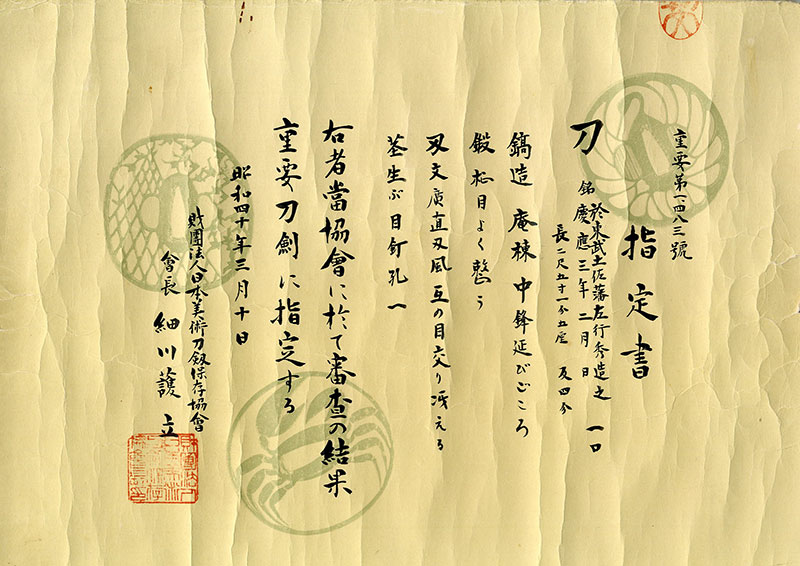 重要第一四八三號
指定書
刀 銘 於東武土佐藩左行秀造之 一口
慶應三年二月日
長二尺五寸一分五厘 反四分
鎬造 庵棟 中鋒延びごころ
鍛 板目よく整う
刃文 廣直刃風 互の目交り 冴える
茎 生ぶ 目釘孔一
右者當協會に於て審査の結果
重要刀劍に指定する
昭和四十年三月十日
財團法人日本美術刀劔保存協會
會長 細川護立